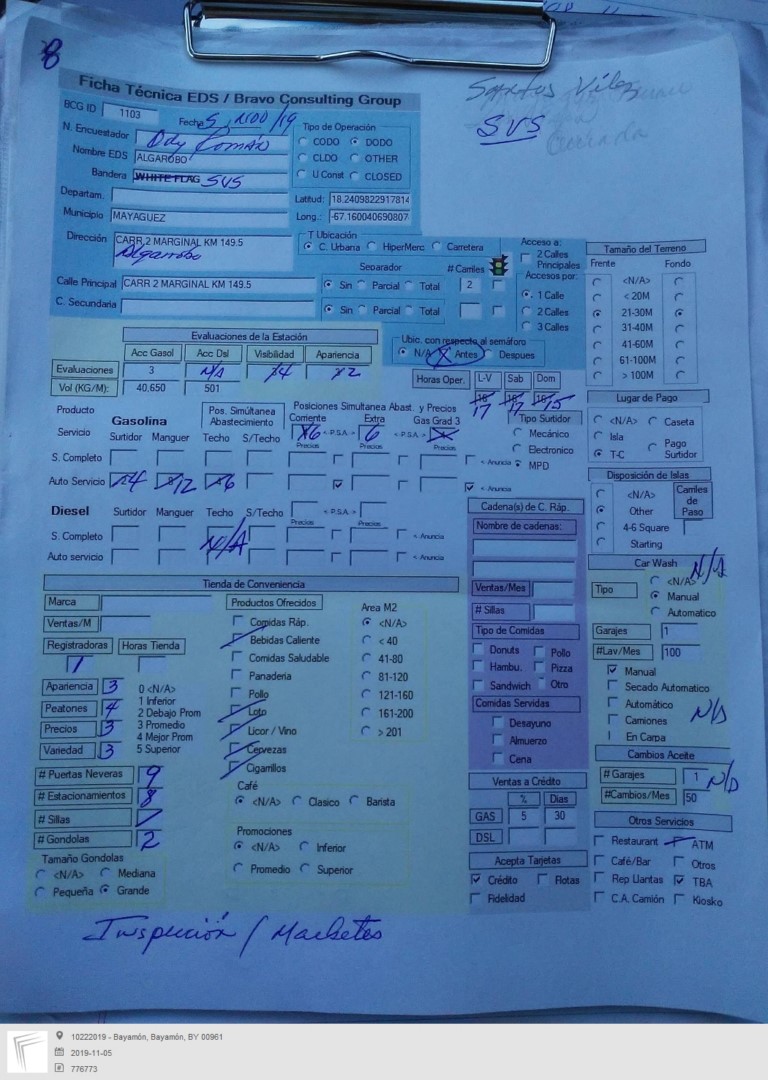 8
Santos Vélez
SVS
Cerrada
Ficha Técnica EDS / Bravo Consulting Group
BCG ID 1103
Fecha 5 Nov /19
N. Encuestador Ody Román
Nombre EDS ALGAROBO
Bandera WHITE FLAG SVS
Departam.
Municipio MAYAGUEZ
Tipo de Operación
CODO DODO
CLDO OTHER
U Const CLOSED
Latitud: 18.2409822917814
Long.: -67.160040690807
Dirección CARR 2 MARGINAL KM 149.5
Algarrobo
T Ubicación
C. Urbana HiperMerc Carretera
Calle Principal CARR 2 MARGINAL KM 149.5
C. Secundaria
Separador # Carriles
Sin Parcial Total 2
Sin Parcial Total
Acceso a:
2 Calles Principales
Accesos por:
1 Calle
2 Calles
3 Calles
Tamaño del Terreno
Frente Fondo
<N/A>
< 20M
21-30M
31-40M
41-60M
61-100M
> 100M
Evaluaciones de la Estación
Acc Gasol Acc Dsl Visibilidad Apariencia
Evaluaciones 3 N/A 4 2
Vol (KG/M): 40,650 501
Ubic. con respecto al semáforo
N/A Antes Despues
Horas Oper. L-V Sab Dom
17 17 15
Lugar de Pago
<N/A> Caseta
Isla
T-C Pago Surtidor
Producto
Servicio
Gasolina
Surtidor Manguer Techo S/Techo
Pos. Simúltanea Abastecimiento
Posiciones Simultanea Abast. y Precios
Corriente Extra Gas Grad 3
6 < P.S.A. > 6 < P.S.A. >
Precios Precios Precios
S. Completo < Anuncia
Auto Servicio 4 12 6 < Anuncia
Tipo Surtidor
Mecánico
Electronico
MPD
Diesel Surtidor Manguer Techo S/Techo < P.S.A. >
Precios Precios
S. Completo N/A < Anuncia
Auto servicio < Anuncia
Disposición de Islas
<N/A>
Other
4-6 Square
Starting
Carriles de Paso
Cadena(s) de C. Ráp.
Nombre de cadenas:
Ventas/Mes
# Sillas
Tipo de Comidas
Donuts Pollo
Hambu. Pizza
Sandwich Otro
Comidas Servidas
Desayuno
Almuerzo
Cena
Ventas a Crédito
% Dias
GAS 5 30
DSL
Acepta Tarjetas
Crédito Flotas
Fidelidad
Car Wash N/A
Tipo
<N/A>
Manual
Automatico
Garajes 1
#Lav/Mes 100
Manual
Secado Automatico
Automático
Camiones
En Carpa
N/A
Cambios Aceite
# Garajes 1 N/D
#Cambios/Mes 50
Otros Servicios
Restaurant ATM
Café/Bar Otros
Rep Llantas TBA
C.A. Camión Kiosko
Tienda de Conveniencia
Marca
Ventas/M
Registradoras Horas Tienda
1
Apariencia 3
Peatones 4
Precios 3
Variedad 3
0 <N/A>
1 Inferior
2 Debajo Prom
3 Promedio
4 Mejor Prom
5 Superior
# Puertas Neveras 9
# Estacionamientos 8
# Sillas
# Gondolas 2
Tamaño Gondolas
<N/A> Mediana
Pequeña Grande
Productos Ofrecidos
Comidas Ráp.
Bebidas Caliente
Comidas Saludable
Panaderia
Pollo
Loto
Licor / Vino
Cervezas
Cigarrillos
Café
<N/A> Clasico Barista
Promociones
<N/A> Inferior
Promedio Superior
Area M2
<N/A>
< 40
41-80
81-120
121-160
161-200
> 201
Inspección / Machetes
10222019 - Bayamón, Bayamón, BY 00961
2019-11-05
776773